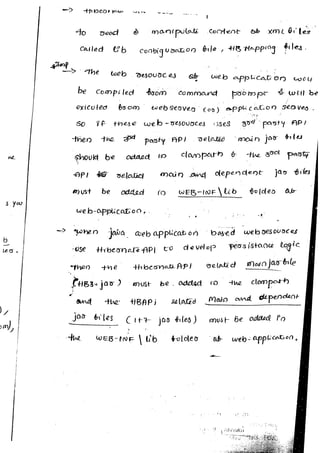 to read & manipulate content of xml files
called HB configuration file, HB Mapping files.
→ The web resources of web application will
be compiled from command prompt & will be
executed from web server (or) application server.
So if these web-resources uses 3rd party API
then the 3rd party API related main jar files
should be added in classpath & the 3rd party
API related main and dependent jar files
must be added in WEB-INF\lib folder of
web-application.
→ When java web application based web resources
use Hibernate API to develop persistance logic
then the Hibernate API related main jar file
(HB3.jar) must be added in the classpath
and the HB API related Main and dependent
jar files (1+7 jar files) must be added in
the WEB-INF\lib folder of web-application.